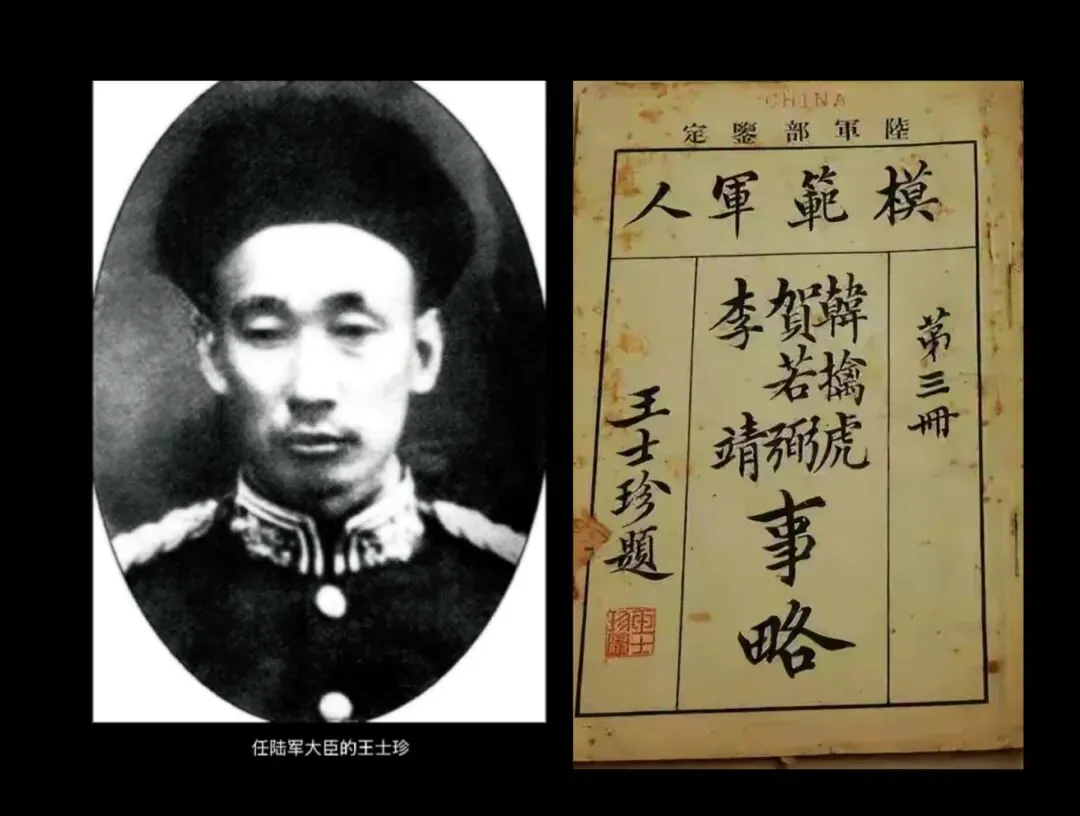 任陆军大臣的王士珍
CHINA
陸軍部鑒定
模範軍人
第三冊
韓擒虎
賀若弼
李靖
事略
王士珍題